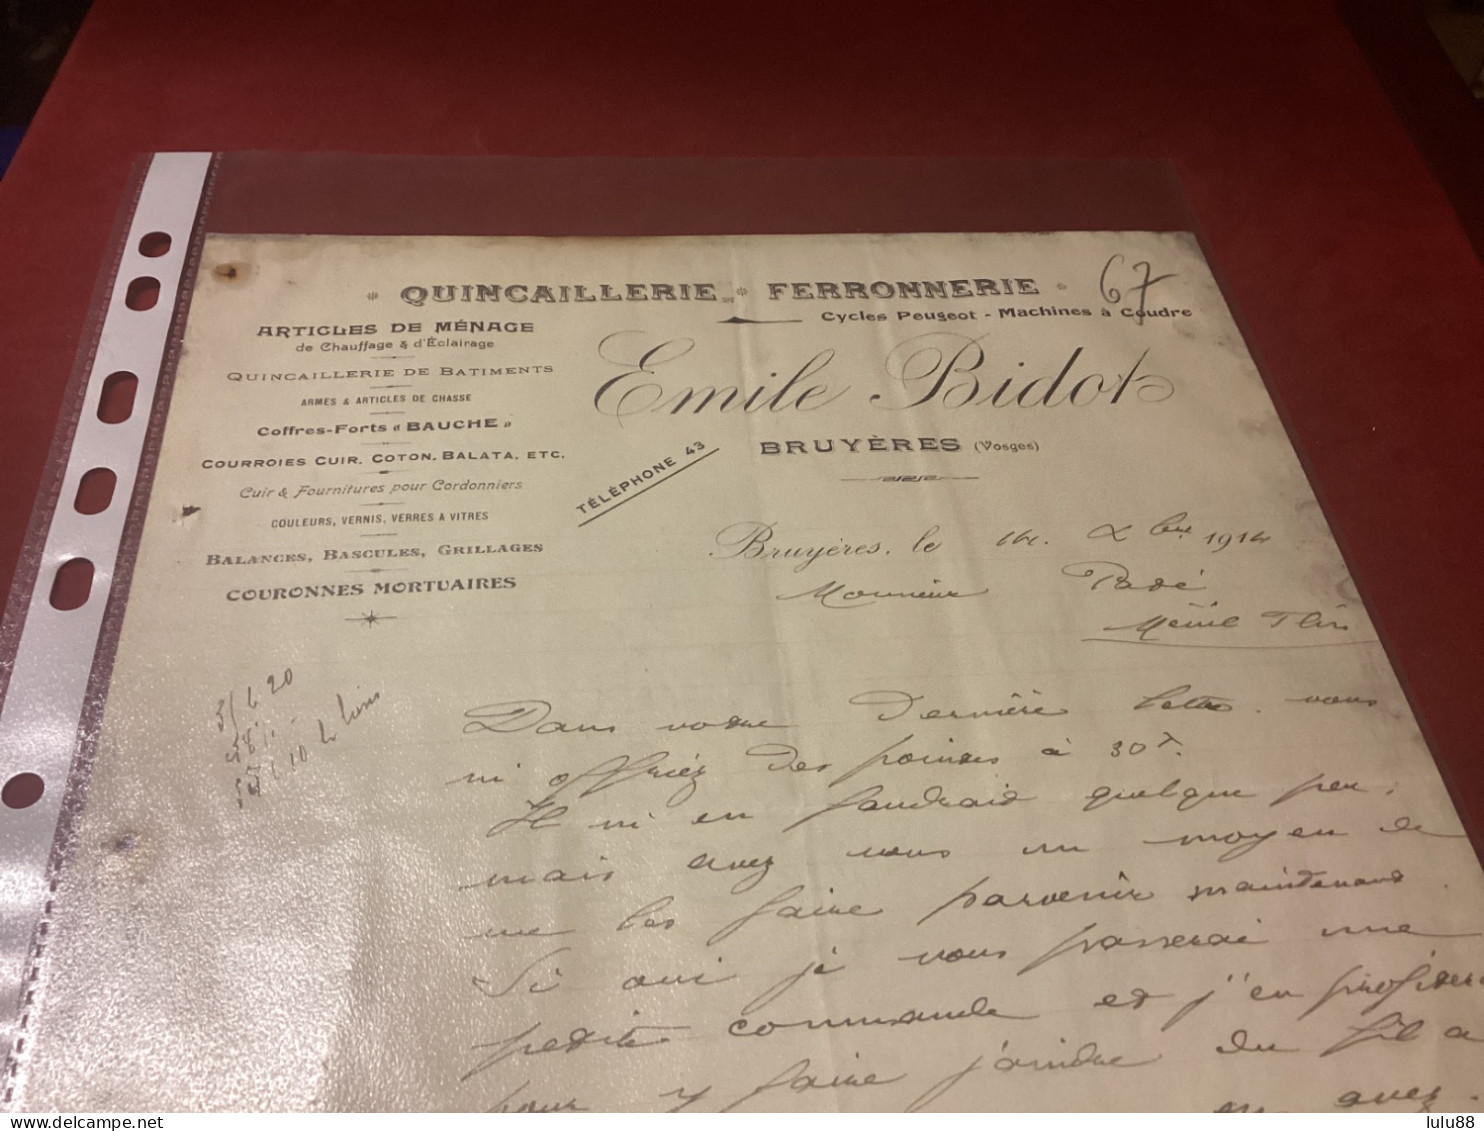 QUINCAILLERIE * FERRONNERIE
67
Cycles Peugeot - Machines à Coudre
ARTICLES DE MÉNAGE
de Chauffage & d'Éclairage
QUINCAILLERIE DE BATIMENTS
ARMES & ARTICLES DE CHASSE
Coffres-Forts « BAUCHE »
COURROIES CUIR, COTON, BALATA, ETC.
Cuir & Fournitures pour Cordonniers
COULEURS, VERNIS, VERRES A VITRES
BALANCES, BASCULES, GRILLAGES
COURONNES MORTUAIRES
Emile Bidot
BRUYÈRES (Vosges)
TÉLÉPHONE 43
Bruyères, le 14 Xbre 1914
Monsieur
Dans votre dernière lettre vous
m'offriez des pointes à 30f.
Il m'en faudrait quelque peu,
mais avez vous un moyen de
me les faire parvenir maintenant.
Si oui je vous passerai une
petite commande et j'en profiterai
pour y faire joindre du fil a
en avez
lulu88